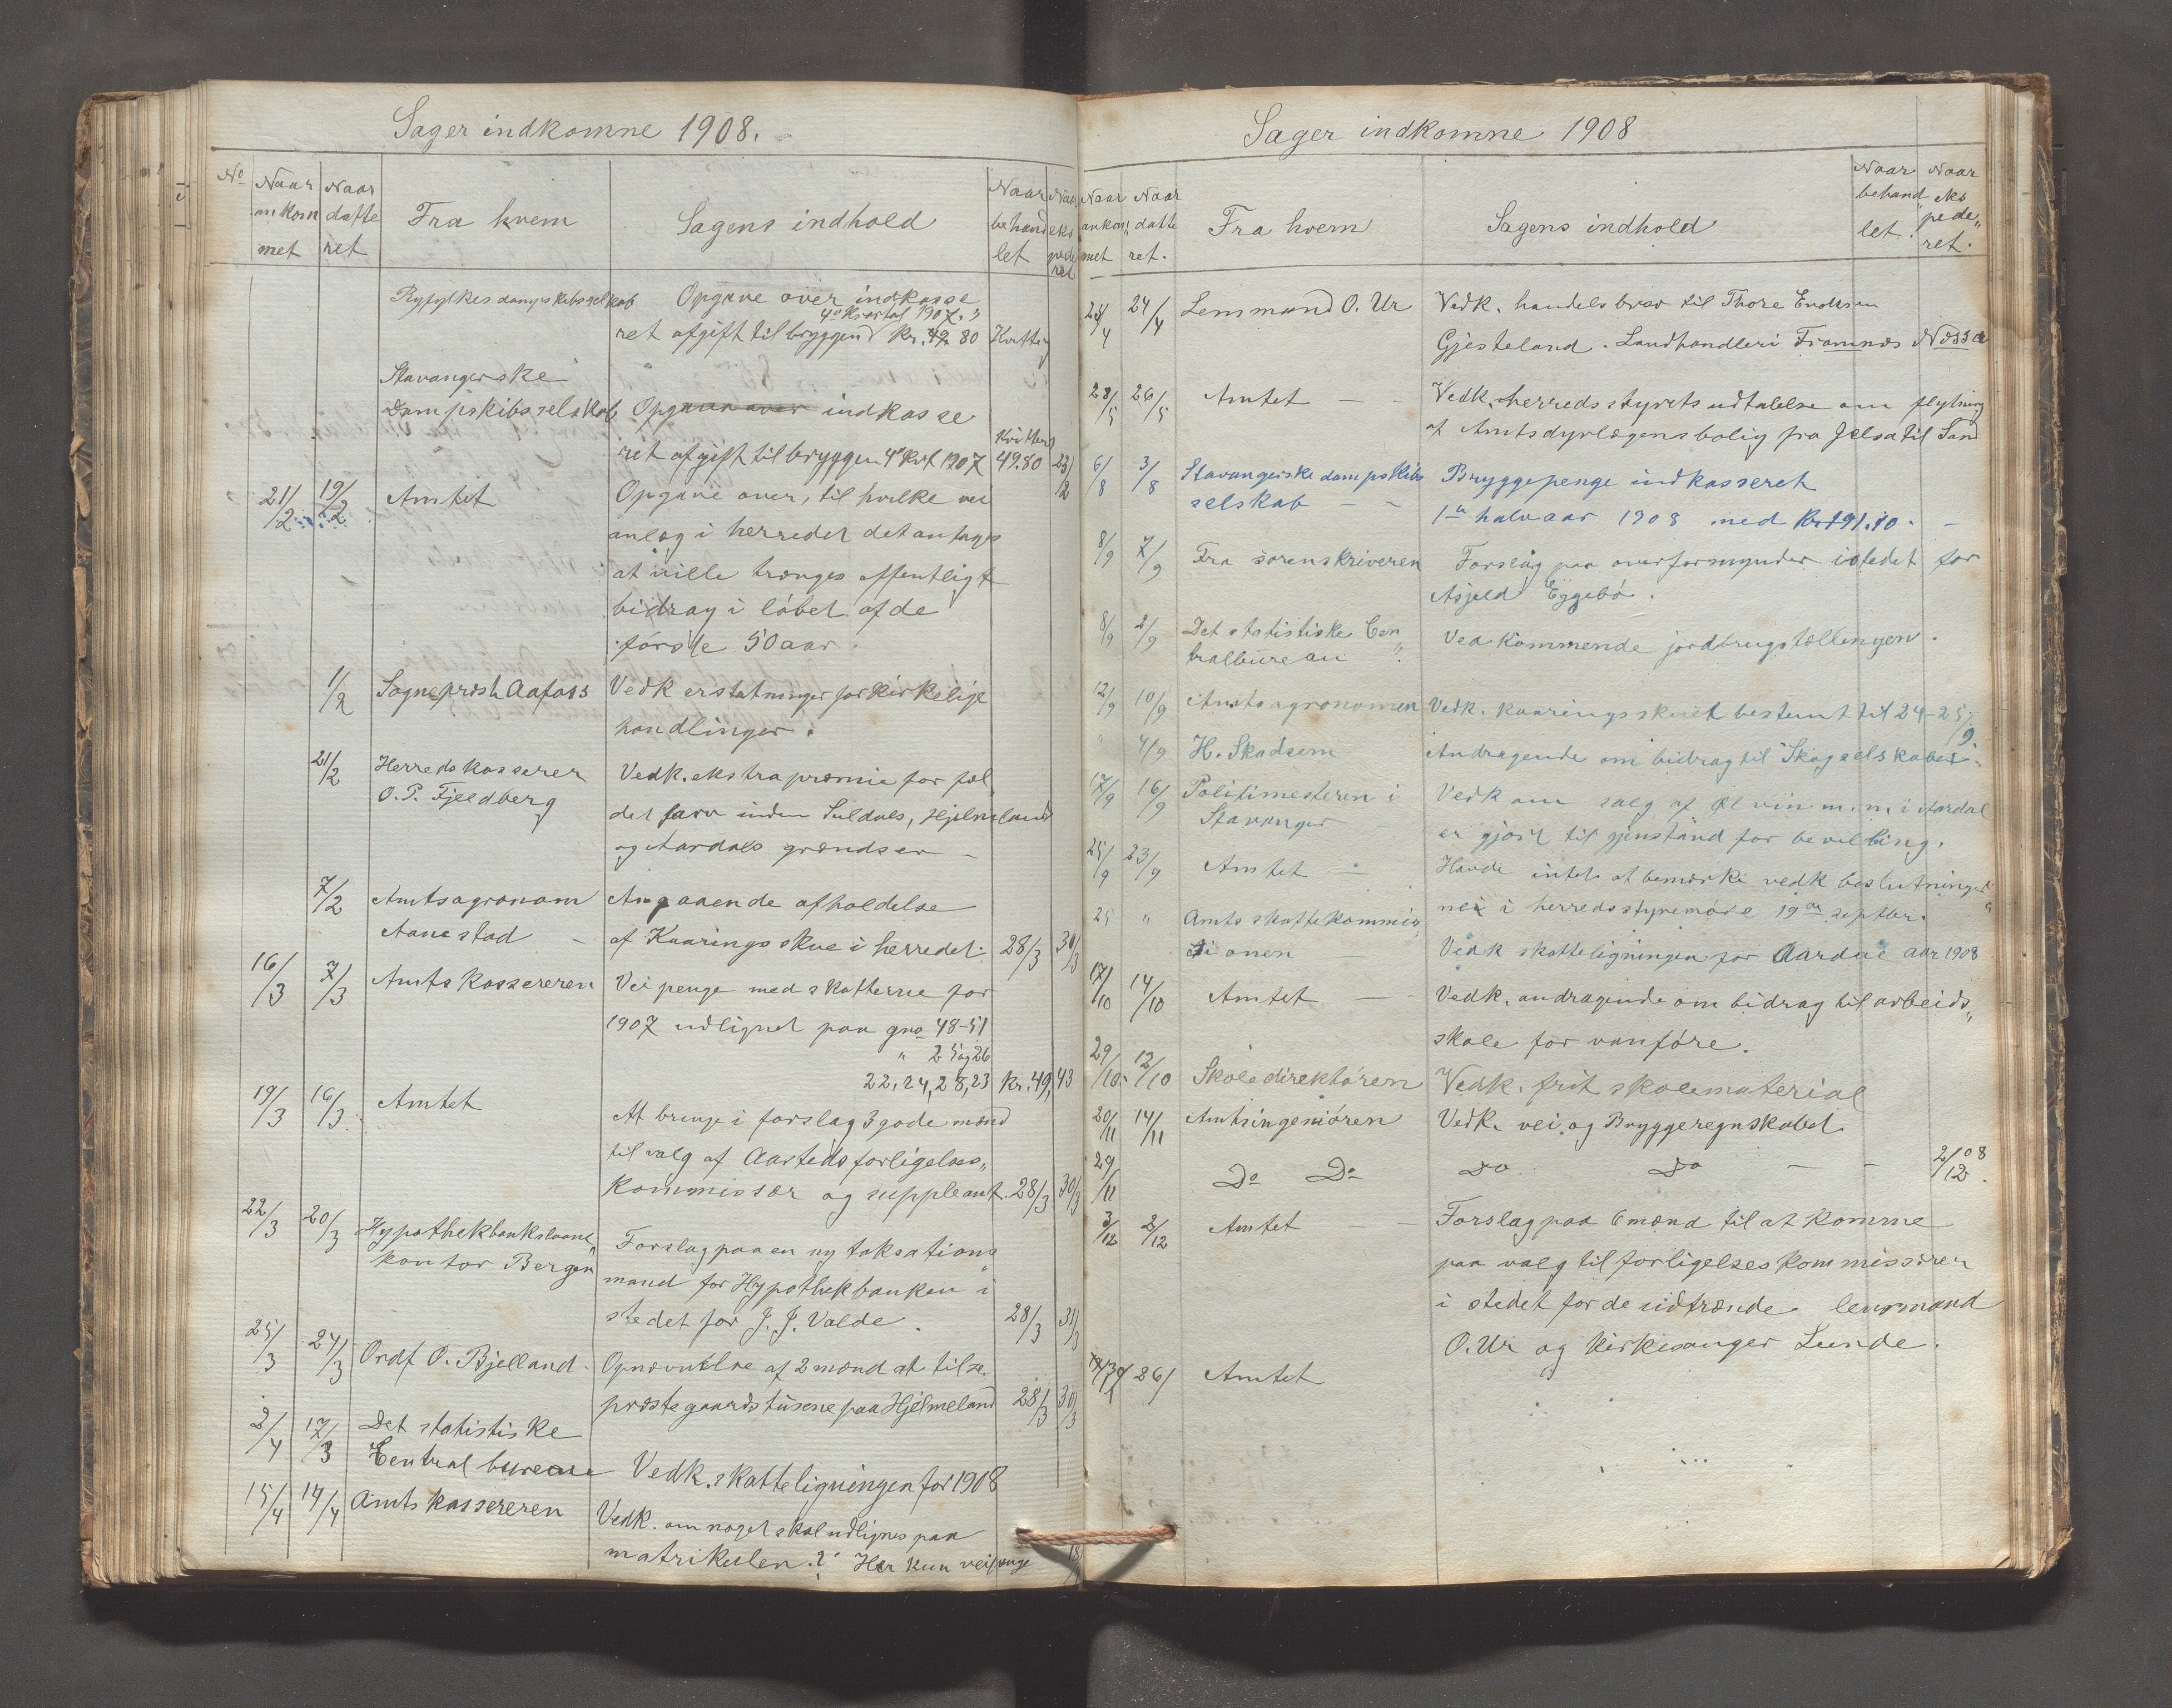 Sager indkomne 1908.
No Naar ankommet Naar datteret Fra hvem Sagens indhold Naar behandlet Naar ekspederet
Ryfylkes dampskibsselskab Opgave over indkasse
4de Kvartal 1907.
ret afgift til bryggend Kr. 49.80
Stavangerske
Dampskibsselskab Opgave over indkasse
ret afgift til bryggen 4de Kvt 1907 49.80 23/2
21/2 19/2 Amtet Opgave over, til hvilke vei
anlæg i herredet det antages
at ville trænges offentligt
bidrag i løbet af de
første 50 aar.
1/2 Sogneprest Aafoss Vedk erstatninger for kirkelige
handlinger.
21/2 Herredskasserer Vedk. ekstra præmie for fæl
O. P. Fjeldberg
det jærv inden Suldals, Hjelmelands
og Aardals grændser –
7/2 Amtsagronom Angaaende afholdelse
Aanestad – af Kaaringsskue i herredet. 28/3 30/3
16/3 7/3 Amtskassereren Veipenge med skatterne for
1907 udlignet paa gno 48-51
" 25 og 26
22, 24, 28, 23 Kr. 49,43
19/3 16/3 Amtet At bringe i forslag 3 gode mænd
til valg af Aarteds forligelses„
kommissær og suppleant. 28/3 30/3
22/3 20/3 Hypothekbankslaane„ Forslag paa en ny taksations
kontor Bergen mand for Hypothekbanken i
stedet for J. J. Valde. 28/3 31/3
25/3 24/3 Ordf O. Bjelland. Opnævnelse af 2 mænd at tilse.
præstegaardshusene paa Hjelmeland 28/3 30/3
2/4 17/3 Det statistiske
Central bureau Vedk. skatteligningen for 1908
15/4 14/4 Amtskassereren Vedk. om noget skal udlignes paa
matrikulen.? Har kun veipenge
Sager indkomne 1908
Naar ankommet Naar datteret. Fra hvem Sagens indhold Naar behandlet. Naar ekspederet.
24/4 Lensmand O. Ur Vedk. handelsbrev til Thore Endresen
Gjesteland. Landhandleri Framnæs
28/5 26/5 Amtet – – Vedk. herredsstyrets udtalelse om flytning
af Amtsdyrlægens bolig fra Jelsa til Sand
6/8 3/8 Stavangerske dampskibs Bryggepenge indkasseret
selskab – – 1ste halvaar 1908 med Kr 191.10. –
8/9 7/9 Fra sorenskriveren Forslag paa overformynder istedet for
Asjeld Eggebø.
8/9 2/9 Det statistiske Cen„
tralbureau Vedkommende jordbrugstællingen.
12/9 10/9 Amtsagronomen Vedk. Kaaringsskuet bestemt til 24-25/9
" 4/9 H. Skadsem Andragende om bidrag til Skogselskabet.
17/9 16/9 Politimesteren i Vedk om salg af Øl vin m.m. i Aardal
Stavanger – er gjort til gjenstand for bevilling.
25/9 23/9 Amtet – Havde intet at bemærke vedk beslutninger„
ne i herredsstyremøde 19de septbr.
25 " Amtsskattekommis„
sionen – Vedk skatteligningen for Aardal aar 1908
17/10 14/10 Amtet – – Vedk. andragende om bidrag til arbeids„
skole for vanføre.
29/10 12/10 Skoledirektøren Vedk. frit skolemateriel
20/11 14/11 Amtsingeniøren Vedk. vei og Bryggeregnskabet
29/11 Do Do Do Do – – 2/12 08.
3/12 2/12 Amtet – – Forslag paa 6 mænd til at komme
paa valg til forligelseskommissæren
i stedet for de udtrædende lensmand
O. Ur og kirkesanger Lunde.
26/ Amtet